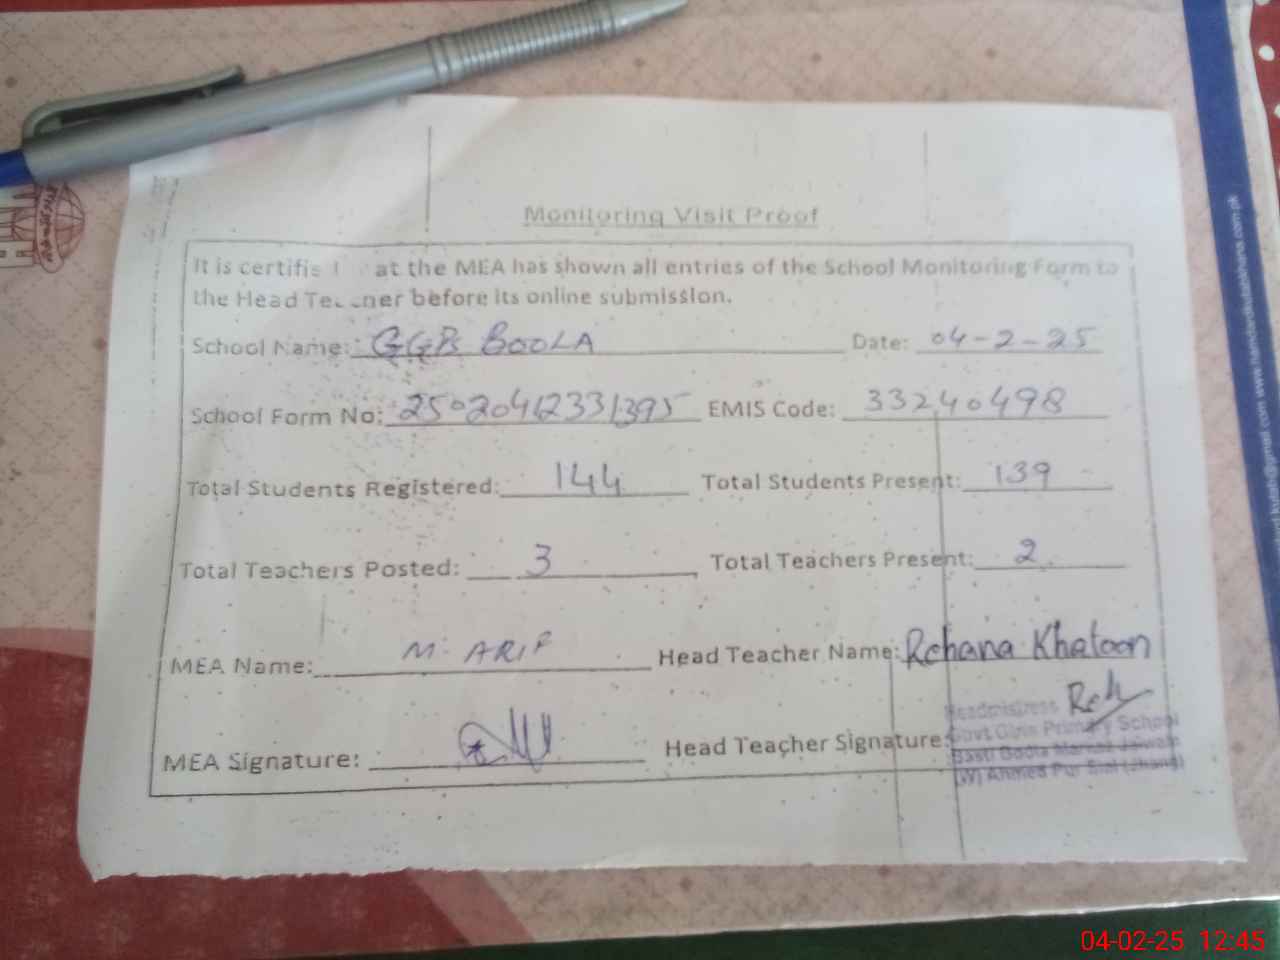 Monitoring Visit Proof
It is certifie at the MEA has shown all entries of the School Monitoring Form to
the Head Teacher before its online submission.
School Name: GGPS BOOLA Date: 04-2-25
School Form No: 25020412331395 EMIS Code: 33240498
Total Students Registered: 144 Total Students Present: 139
Total Teachers Posted: 3 Total Teachers Present: 2
MEA Name: M. ARIF Head Teacher Name: Rehana Khatoon
MEA Signature: Head Teacher Signature: Reh
Headmistress
Govt Girls Primary School
Basti Boola
(W) Ahmed Pur Sial (Jhang)
www.hamdardkutabkhana.com.pk
04-02-25 12:45